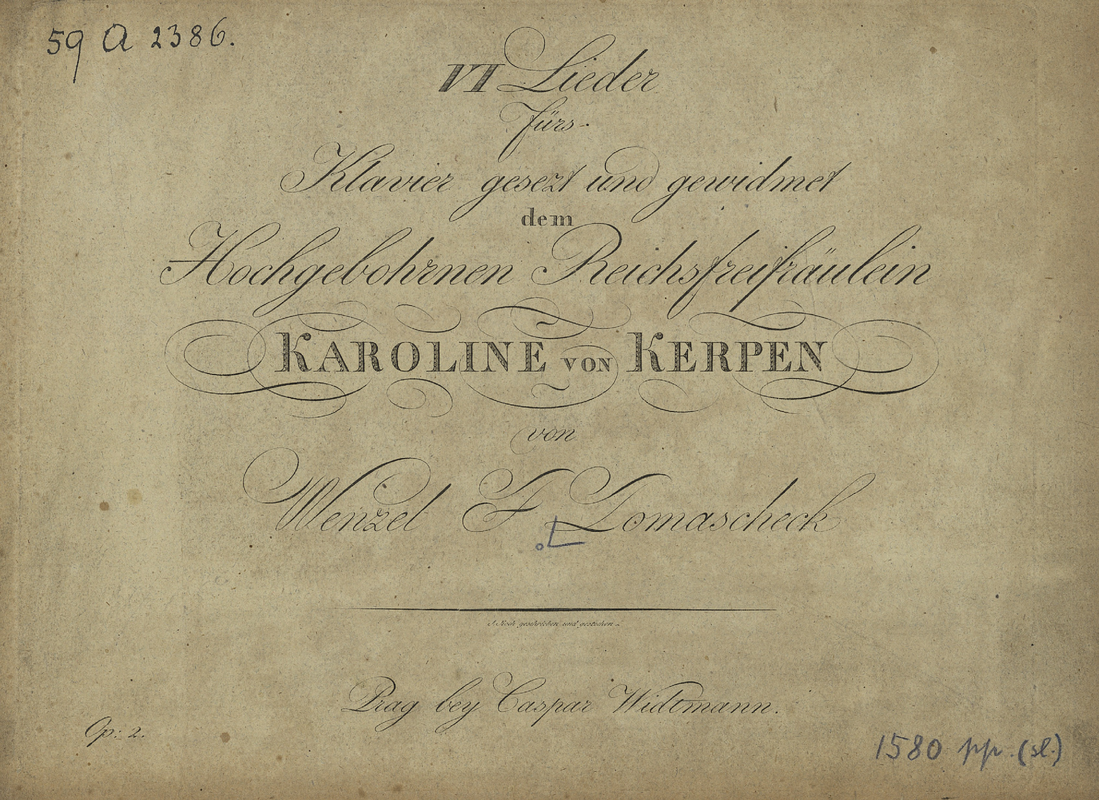 59 A 2386.
VI Lieder
fürs
Klavier gesezt und gewidmet
dem
Hochgebohrnen Reichsfreifräulein
KAROLINE VON KERPEN
von
Wenzel F Tomascheck
geschrieben und gestochen
Prag bey Caspar Widtmann.
Op: 2.
1580 pp. (sl.)